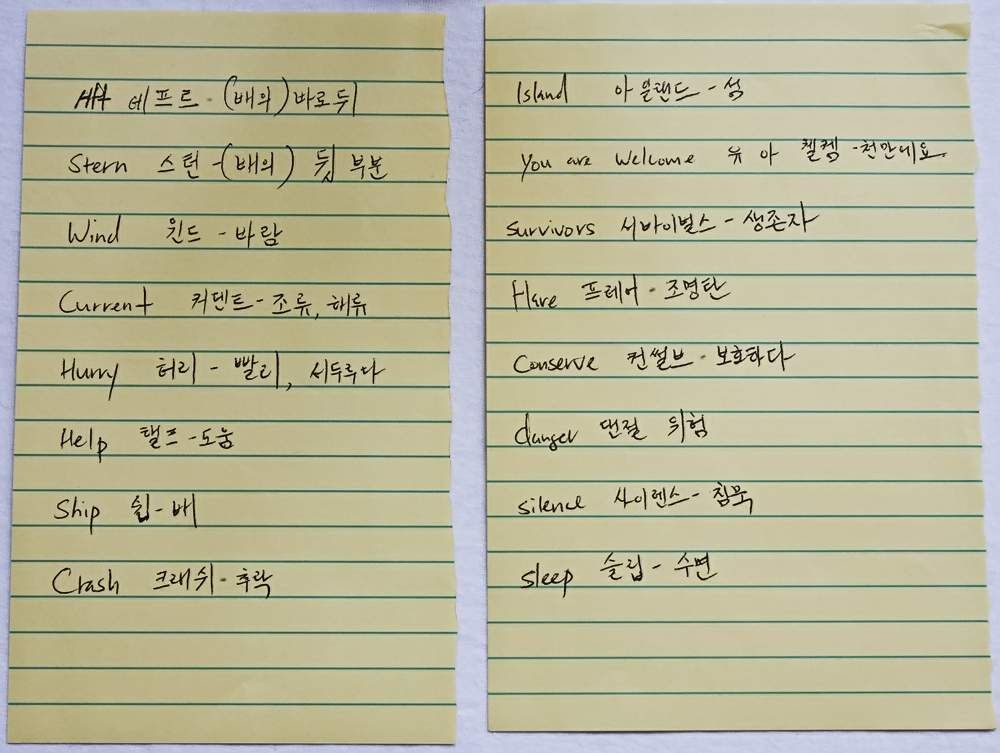 Aft 에프트 - (배의) 바로뒤
Stern 스턴 - (배의) 뒷 부분
Wind 윈드 - 바람
Current 커덴트 - 조류, 해류
Hurry 허리 - 빨리, 서두루다
Help 핼프 - 도움
Ship 쉽 - 배
Crash 크래쉬 - 추락
Island 아일랜드 - 섬
You are Welcome 유 아 웰켐 - 천만네요.
Survivors 서바이벌스 - 생존자
Flare 프레어 - 조명탄
Conserve 컨썰브 - 보호하다
danger 댄절 위험
silence 사이렌스 - 침묵
sleep 슬립 - 수면